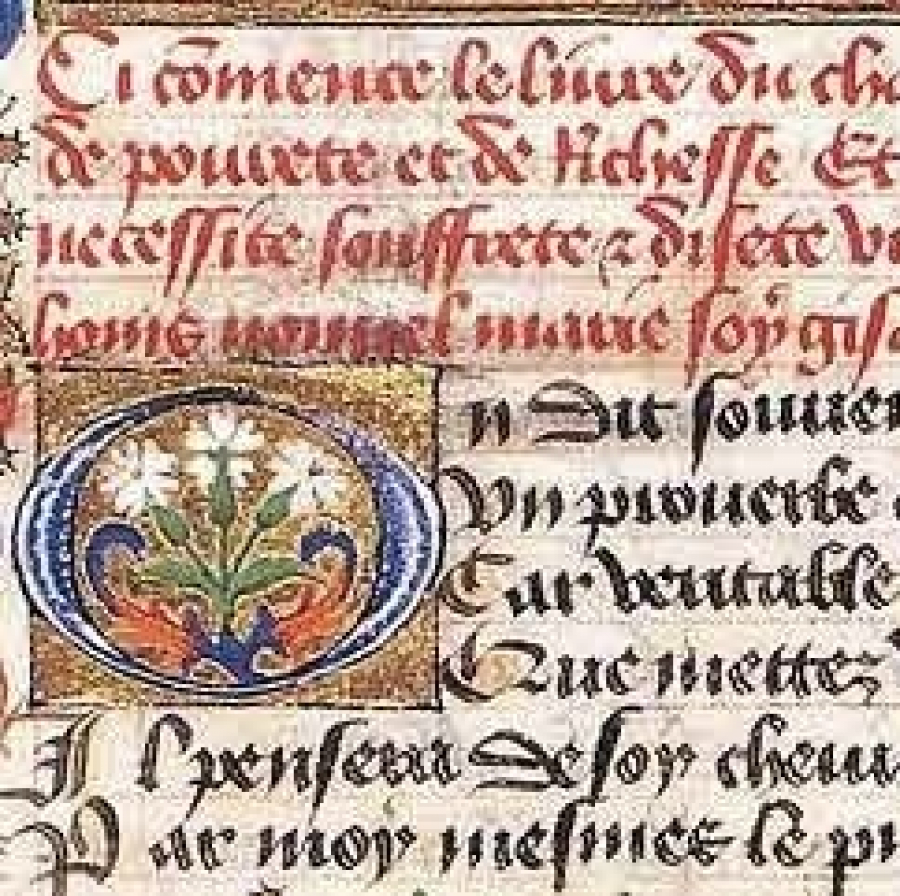 Ci cōmence le liure du che
de pourete et de richesse Et
necessite souffrete & disete vi
homs nouuel marie soy gisa
On dit souuen
Vn prouerbe
Car veritable
Que mettez
Il pensera de soy cheui
Par moy mesmes le pu